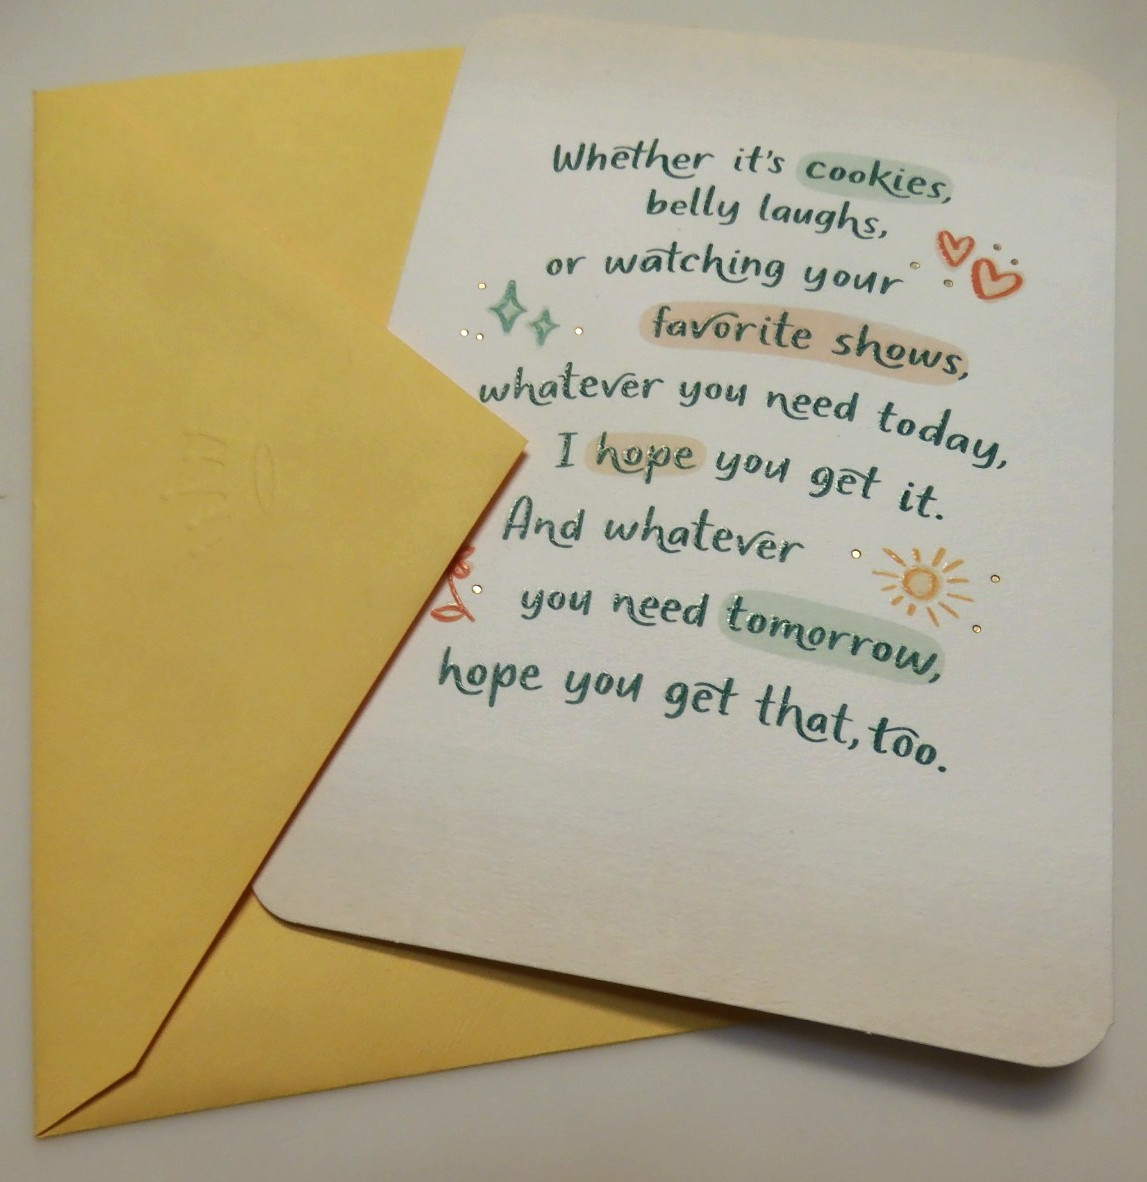 Whether it's cookies,
belly laughs,
or watching your
favorite shows,
whatever you need today,
I hope you get it.
And whatever
you need tomorrow,
hope you get that, too.